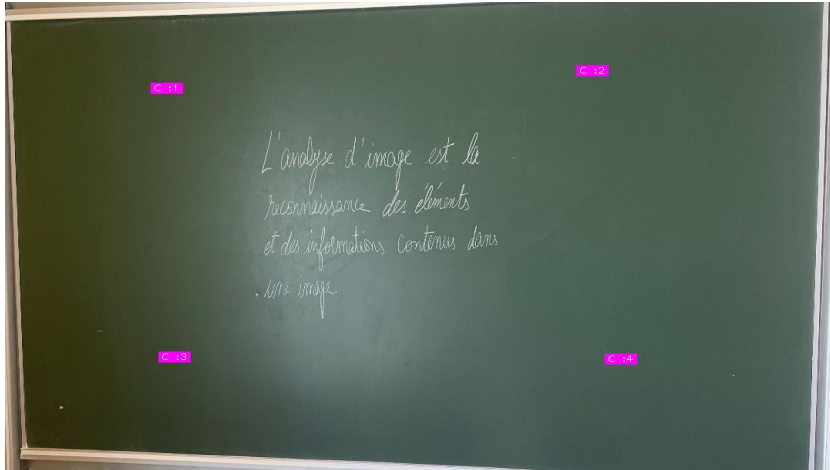 C :1
C :2
L'analyse d'image est la
reconnaissance des éléments
et des informations contenus dans
une image
C :3
C :4